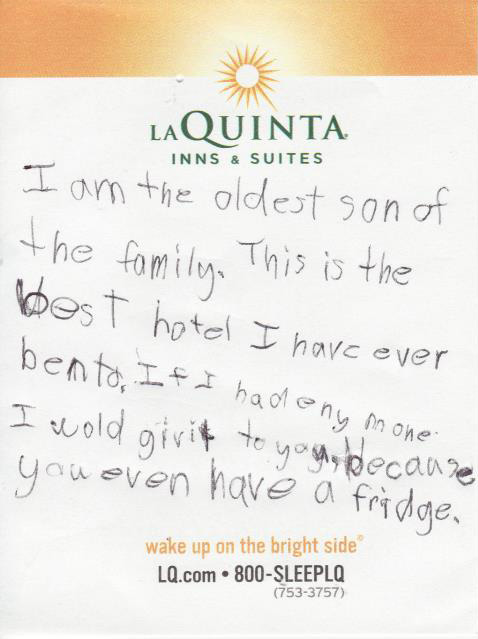 LAQUINTA®
INNS & SUITES
I am the oldest son of
the family. This is the
best hotel I have ever
bento. If I had eny mone
I wold givit to you, because
you even have a fridge.
wake up on the bright side®
LQ.com • 800-SLEEPLQ
(753-3757)